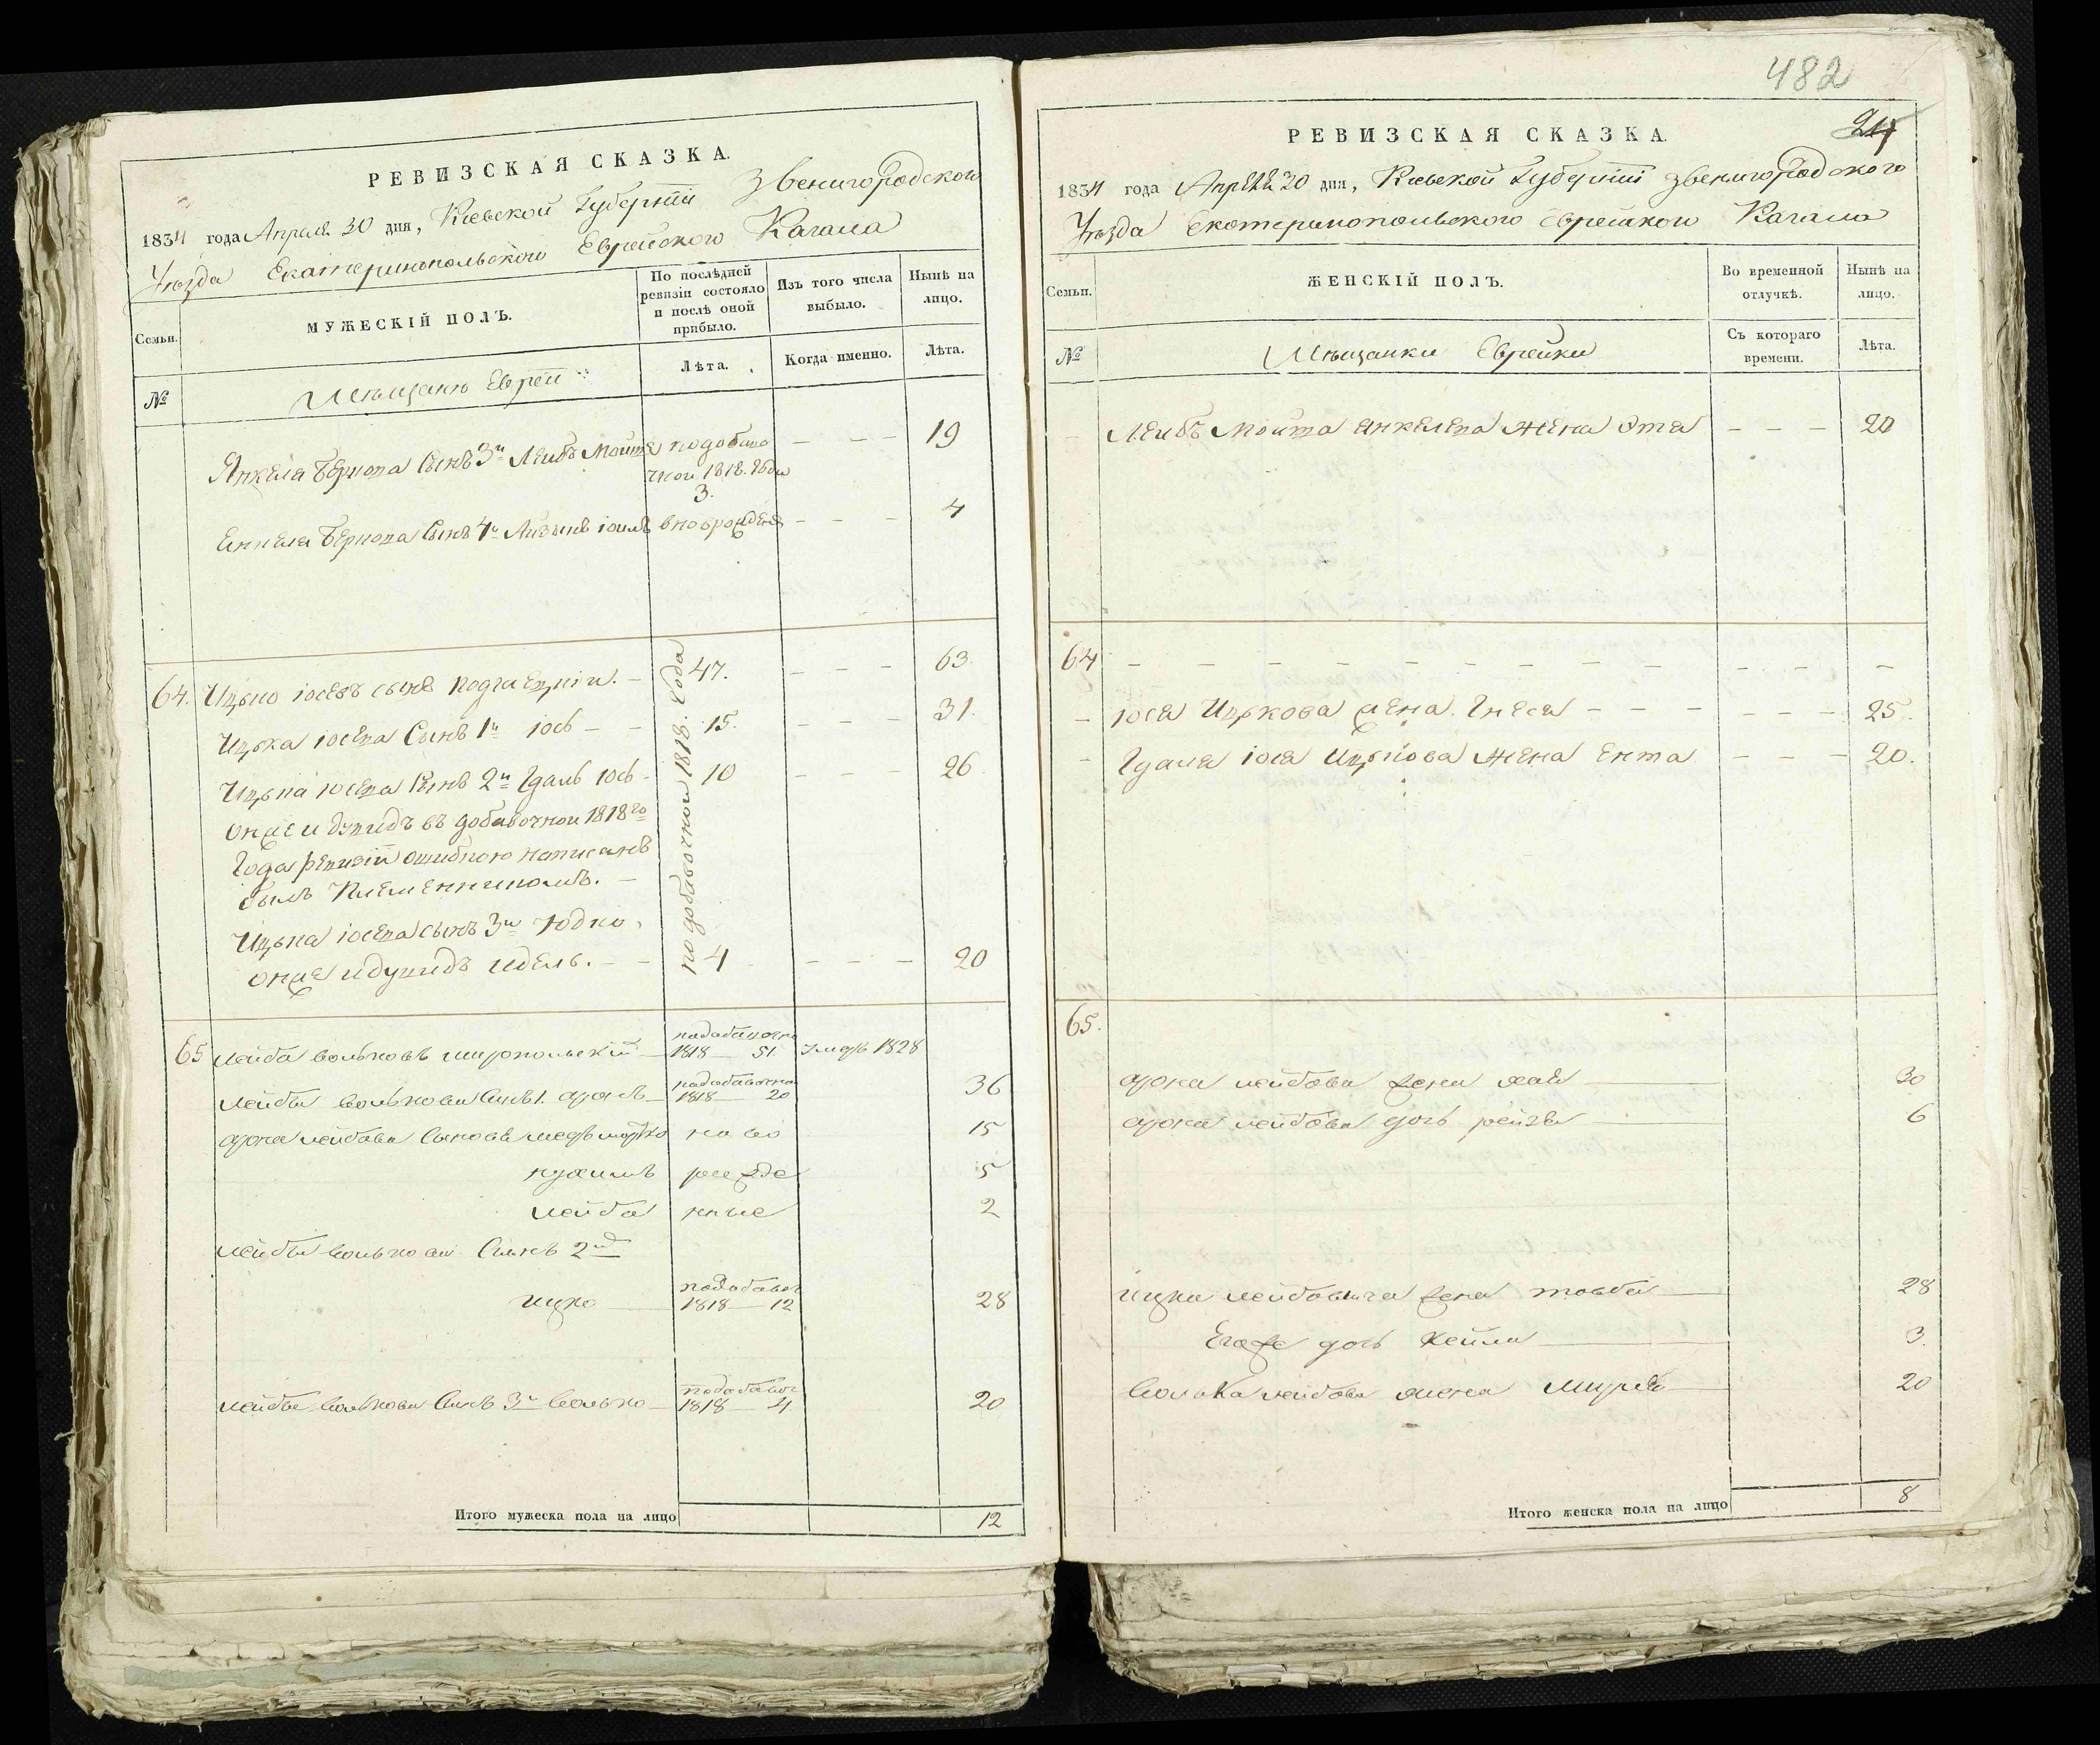 РЕВИЗСКАЯ СКАЗКА.
1834 года Апреля 30 дня, Киевской Губернии Звенигородского
Уезда Екатеринопольского Еврейского Кагала
Семьи. МУЖЕСКІЙ ПОЛЪ. По послѣдней ревизіи состояло и послѣ оной прибыло. Изъ того числа выбыло. Нынѣ на лицо.
№ Мѣщане Евреи Лѣта. Когда именно. Лѣта.
Янкеля Беркова Сынъ 3й Леибъ Мойше по добавочной 1818. года 3. — — — 19
Енкеля Беркова Сынъ 4й Іоиль вноврожден — — — 4
64. Ицько іосевъ сынъ — по добавочной 1818. года 47. — — — 63.
Ицька іосева Сынъ 1й Іось — — 15. — — — 31.
Ицька іосева Сынъ 2й Гдаль Іось — 10 — — — 26
онже и Дувидъ въ добавочной 1818го
Года ревизіи ошибкою написанъ
былъ Племенникомъ. —
Ицька іосева сынъ 3й Юдко,
онже и Дувидъ Идель. — — 4 — — — 20
65 Лейба Вольковъ Широпольскій 1818 — 51. Умеръ 1828
Лейбы Волькова Сынъ 1. Аронъ 1818 — 20 36
Арона Лейбова Сыновя Меер Мошко ново 15
Нухимъ рожде 5
Лейба нные 2
Лейбы Волькова Сынъ 2й
Ицко 1818 — 12 28
Лейбы Волькова Сынъ 3й Волько 1818 — 4 20
Итого мужеска пола на лицо 12
482
24
РЕВИЗСКАЯ СКАЗКА.
1834 года Апреля 30 дня, Киевской Губернии Звенигородского
Уезда Екатеринопольского Еврейского Кагала
Семьи. ЖЕНСКІЙ ПОЛЪ. Во временной отлучкѣ. Нынѣ на лицо.
№ Мѣщанки Еврейки Съ котораго времени. Лѣта.
Леибъ Мойша Янкелева Жена Эта — — — 20
64 — — — — — — — — — — — — —
Іося Ицькова Жена Гнеся — — — — — — 25.
Гдаля іося Ицькова Жена Ента — — — 20.
65.
Арона Лейбова Жена Хая 30
Арона Лейбова дочь Рейзя 6
Ицка Лейбовича Жена Товба 28
Его же дочь Кейла 3.
Волька Лейбова жена Мирля 20
Итого женска пола на лицо 8